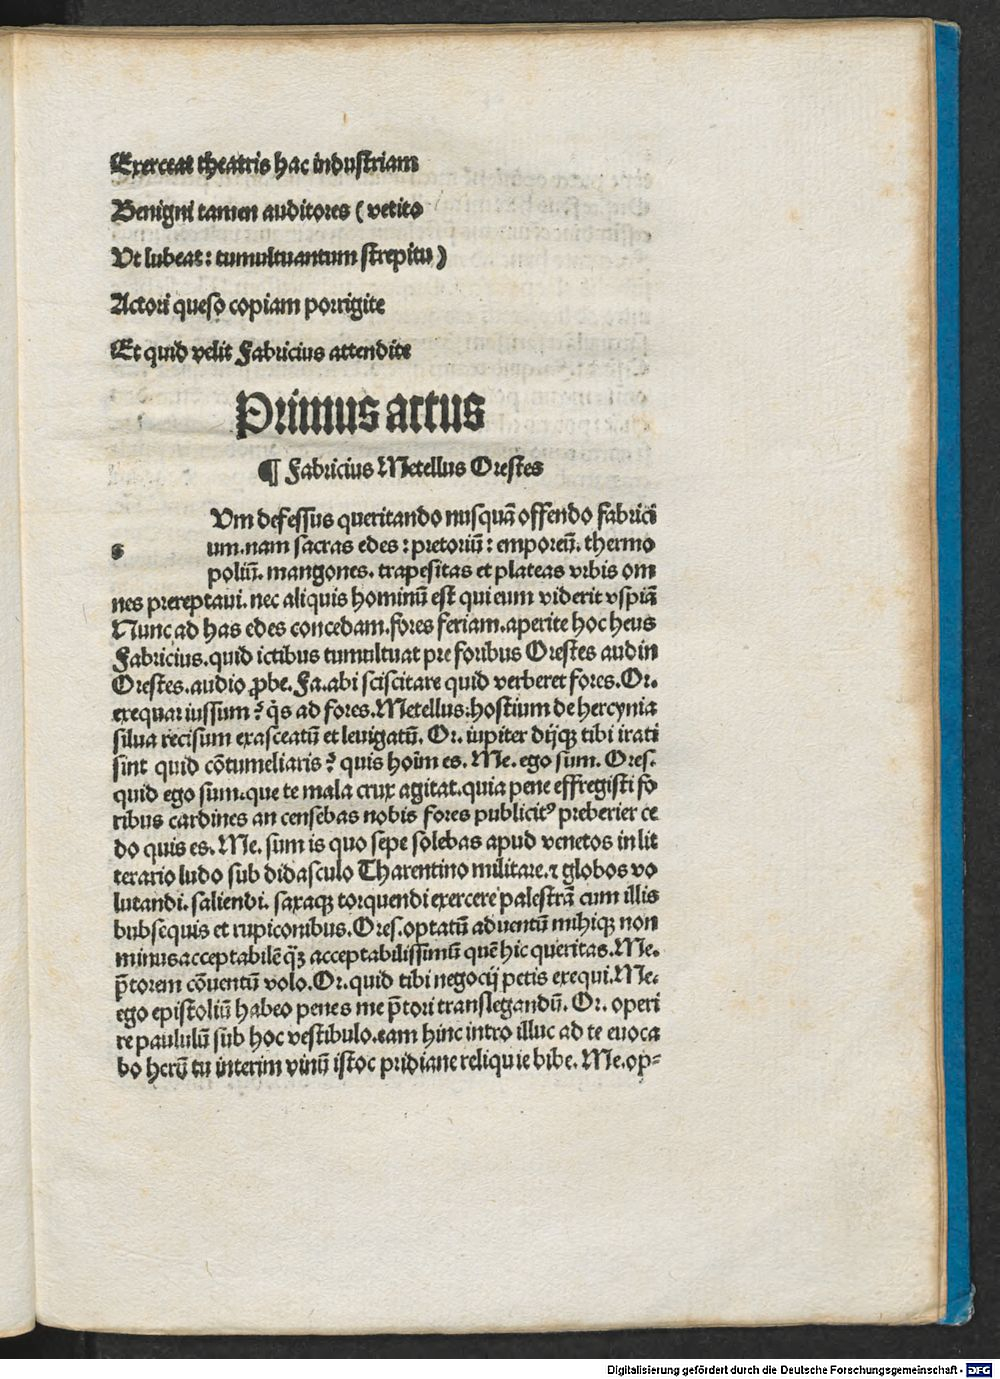 Exerceat theatris hac industriam
Benigni tamen auditores (vetito
Vt lubeat: tumultuantum strepitu)
Actori queso copiam porrigite
Et quid velit Fabricius attendite
Primus actus
¶ Fabricius Metellus Orestes
Vm defessus queritando nusquā offendo fabrici
s um.nam sacras edes: pretoriū: emporeū. thermo
poliū. mangones. trapesitas et plateas vrbis om
nes prereptaui. nec aliquis hominū est qui eum viderit vspiā
Nunc ad has edes concedam.fores feriam.aperite hoc heus
Fabricius.quid ictibus tumultuat pre foribus Orestes audin
Orestes.audio ꝓbe. Fa.abi sciscitare quid verberet fores.Or.
exequar iussum? q̄s ad fores.Metellus:hostium de hercynia
silua recisum exasceatū et leuigatū. Or. iupiter dijqꝫ tibi irati
sint quid cōtumeliaris? quis hoīm es. Me. ego sum. Ores.
quid ego sum.que te mala crux agitat.quia pene effregisti fo
ribus cardines an censebas nobis fores publicitꝰ preberier ce
do quis es. Me. sum is quo sepe solebas apud venetos in lit
terario ludo sub didasculo Tharentino militare.⁊ globos vo
lutandi. saliendi. saxaqꝫ torquendi exercere palestrā cum illis
bubsequis et rupiconibus.Ores.optatū aduentū mihiqꝫ non
minus acceptabilē q̄ꝫ acceptabilissimū quē hic queritas.Me.
p̄torem cōuentū volo.Or.quid tibi negocij petis exequi.Me.
ego epistoliū habeo penes me p̄tori translegandū. Or. operi
re paululū sub hoc vestibulo.eam hinc intro illuc ad te euoca
bo herū tu interim vinū istoc pridiane reliquie bibe. Me.op⸗
Digitalisierung gefördert durch die Deutsche Forschungsgemeinschaft - DFG